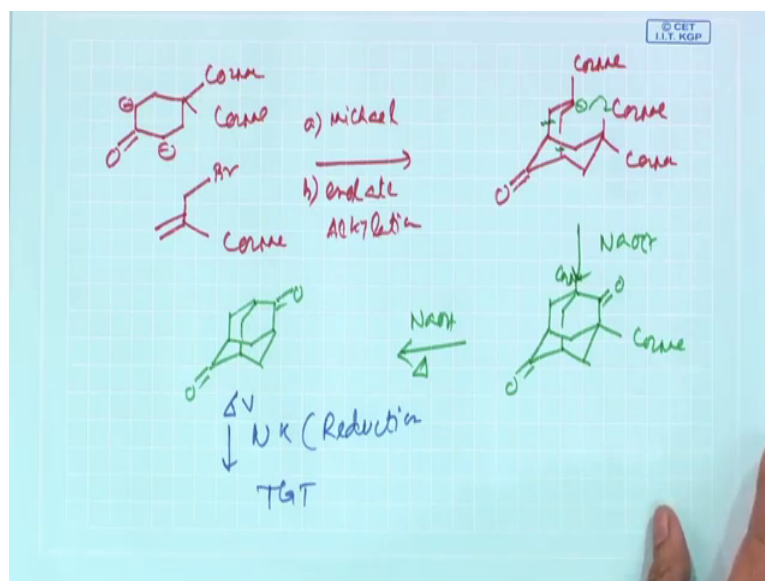 © CET
I.I.T. KGP
CO2Me
CO2Me
a) Michael
O
Br
b) enolate
Alkylation
CO2Me
CO2Me
CO2Me
CO2Me
O
NaOEt
O
CO2Me
O
NaOH
Δ
O
O
NK (Reduction
TGT